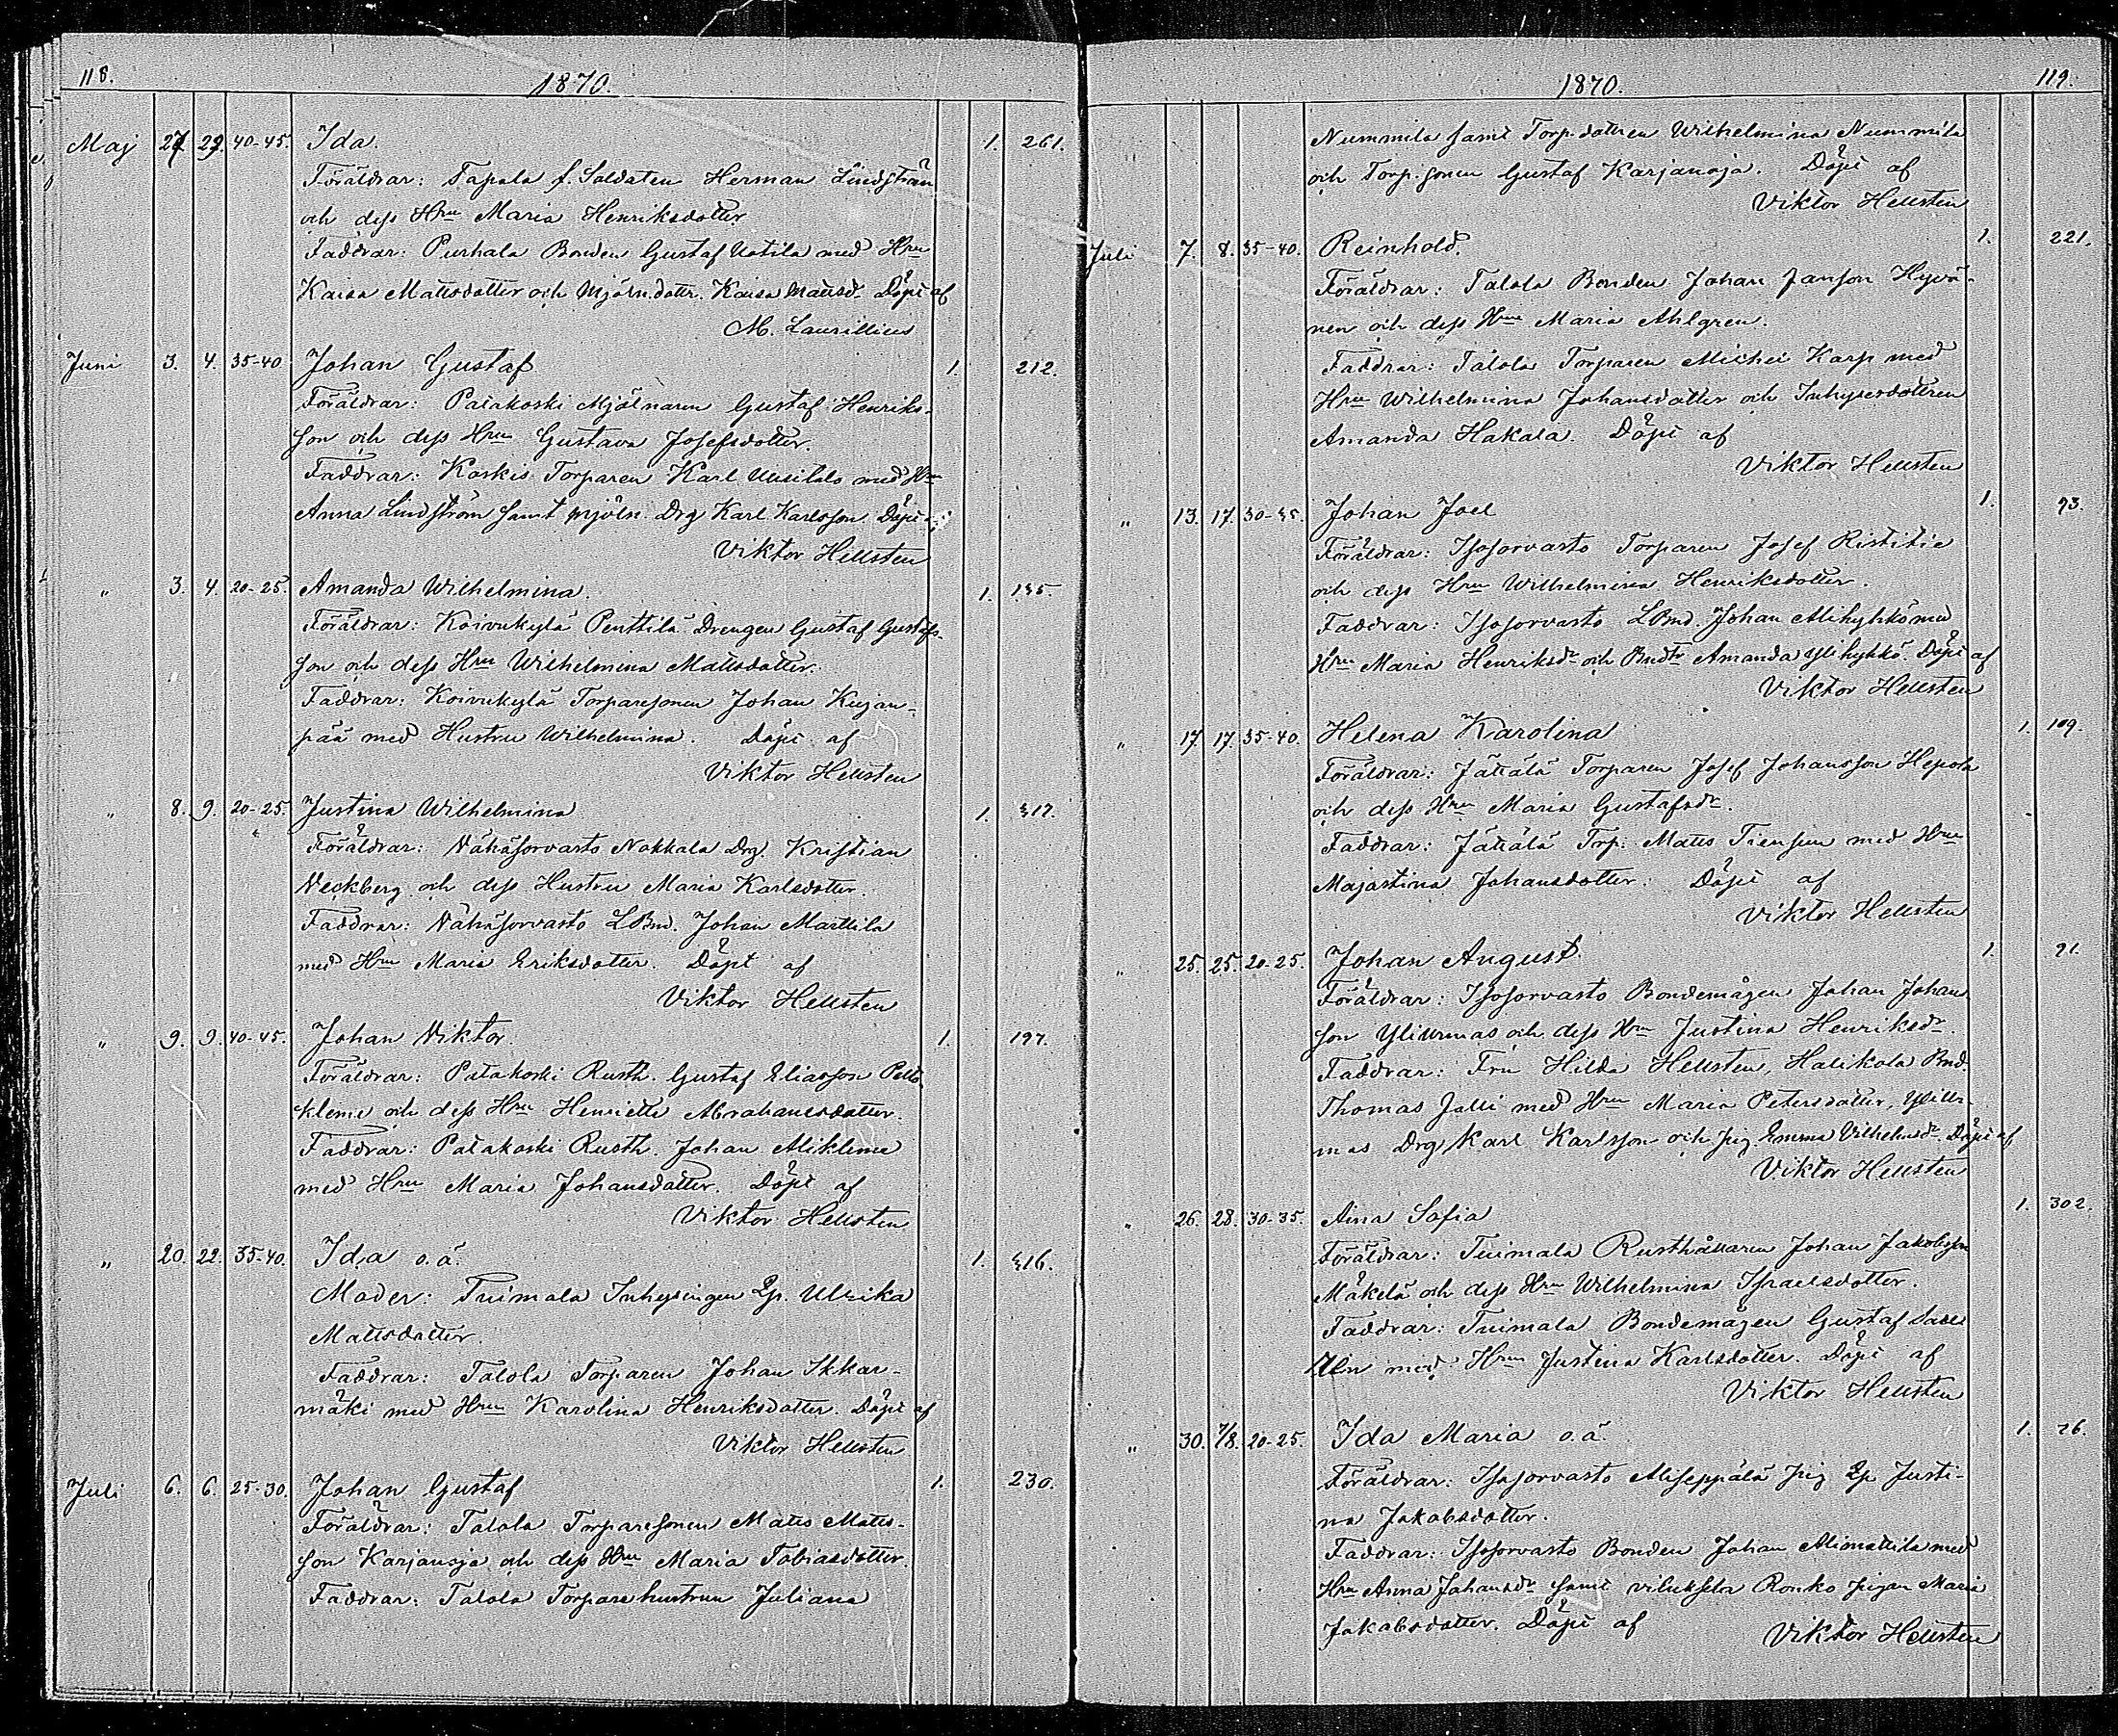 118.
1870.
Maj 27 29. 40-45. Ida. 1. 261.
Föräldrar: Tapala f. Soldaten Herman Lindsträn
och dess Hru Maria Henriksdotter.
Faddrar: Purhala Bonden Gustaf Uotila med Hru
Kaisa Mattsdotter och Mjöln.dottr. Kaisa Mattsd. Döpt af
M. Laurillius
Juni 3. 4. 35-40 Johan Gustaf 1. 212.
Föräldrar: Patakoski Mjölnaren Gustaf Henriks-
son och dess Hru Gustava Josefsdotter.
Faddrar: Koskis Torparen Karl Uusitalo med Hru
Anna Lindström samt mjöln. Drg Karl Karlsson. Döpt
Viktor Hellsten
" 3. 4. 20-25. Amanda Wilhelmina. 1. 135.
Föräldrar: Koivukylä Penttilä Drengen Gustaf Gustafs-
son och dess Hru Wilhelmina Mattsdotter.
Faddrar: Koivukylä Torparesonen Johan Kujan-
pää med Hustru Wilhelmina. Döpt af
Viktor Hellsten
" 8. 9. 20-25. Justina Wilhelmina 1. 317.
Föräldrar: Vähäsorvasto Nokkala Drg. Kristian
Veckberg och dess Hustru Maria Karlsdotter.
Faddrar: Vähäsorvasto LBnd. Johan Marttila
med Hru Maria Eriksdotter. Döpt af
Viktor Hellsten
" 9. 9. 40-45. Johan Viktor. 1. 197.
Föräldrar: Patakoski Rusth. Gustaf Eliasson Pello
kleme och dess Hru Henriette Abrahamsdotter.
Faddrar: Patakoski Rusth. Johan Alikleme
med Hru Maria Johansdotter. Döpt af
Viktor Hellsten
" 20. 22. 35-40. Ida o.ä. 1. 316.
Moder: Tuimala Inhysingen Lp. Ulrika
Mattsdotter.
Faddrar: Talola Torparen Johan Ikkar-
mäki med Hru Karolina Henriksdotter. Döpt af
Viktor Hellsten
Juli 6. 6. 25-30. Johan Gustaf 1. 230.
Föräldrar: Talola Torparesonen Matts Matts-
son Karjanoja och dess Hru Maria Tobiasdotter.
Faddrar: Talola Torparehustrun Juliana
1870.
119.
Nummila samt Torp.dottren Wilhelmina Nummila
och Torp.sonen Gustaf Karjanoja. Döpt af
Viktor Hellsten
Juli 7. 8. 35-40. Reinhold. 1. 221.
Föräldrar: Talola Bonden Johan Janson Hyvö-
nen och dess Hru Maria Ahlgren.
Faddrar: Talola Torparen Michel Karp med
Hru Wilhelmina Johansdotter och Inhysesdottren
Amanda Hakala. Döpt af
Viktor Hellsten
" 13. 17. 30-35. Johan Joel 1. 93.
Föräldrar: Isosorvasto Torparen Josef Ristitie
och dess Hru Wilhelmina Henriksdotter.
Faddrar: Isosorvasto LBnd. Johan Alihyhkö med
Hru Maria Henriksdr och Bndtr Amanda Ylihyhkö. Döpt af
Viktor Hellsten
" 17. 17. 35-40. Helena Karolina 1. 109.
Föräldrar: Jättälä Torparen Josef Johansson Hepola
och dess Hru Maria Gustafsdr.
Faddrar: Jättälä Torp. Matts Tiensuu med Hru
Majastina Johansdotter. Döpt af
Viktor Hellsten
" 25. 25. 20-25. Johan August. 1. 91.
Föräldrar: Isosorvasto Bondemågen Johan Johan
son Yliurmas och dess Hru Justina Henriksdr.
Faddrar: Fru Hilda Hellsten, Halikola Bnd.
Thomas Jalli med Hru Maria Petersdotter, Yliur-
mas Drg Karl Karlsson och pig. Emma Vilhelmsdr. Döpt af
Viktor Hellsten
" 26. 28. 30-35. Aina Sofia 1. 302.
Föräldrar: Tuimala Rusthållaren Johan Jakobsson
Mäkelä och dess Hru Wilhelmina Israelsdotter.
Faddrar: Tuimala Bondemågen Gustaf
med Hru Justina Karlsdotter. Döpt af
Viktor Hellsten
" 30. 7/8. 20-25. Ida Maria o.ä. 1. 76.
Föräldrar: Isosorvasto Aliseppälä pig Lp Justi-
na Jakobsdotter.
Faddrar: Isosorvasto Bonden Johan Alimattila med
Hru Anna Johansdr samt Vilukselo Ronko pigan Maria
Jakobsdotter. Döpt af Viktor Hellsten